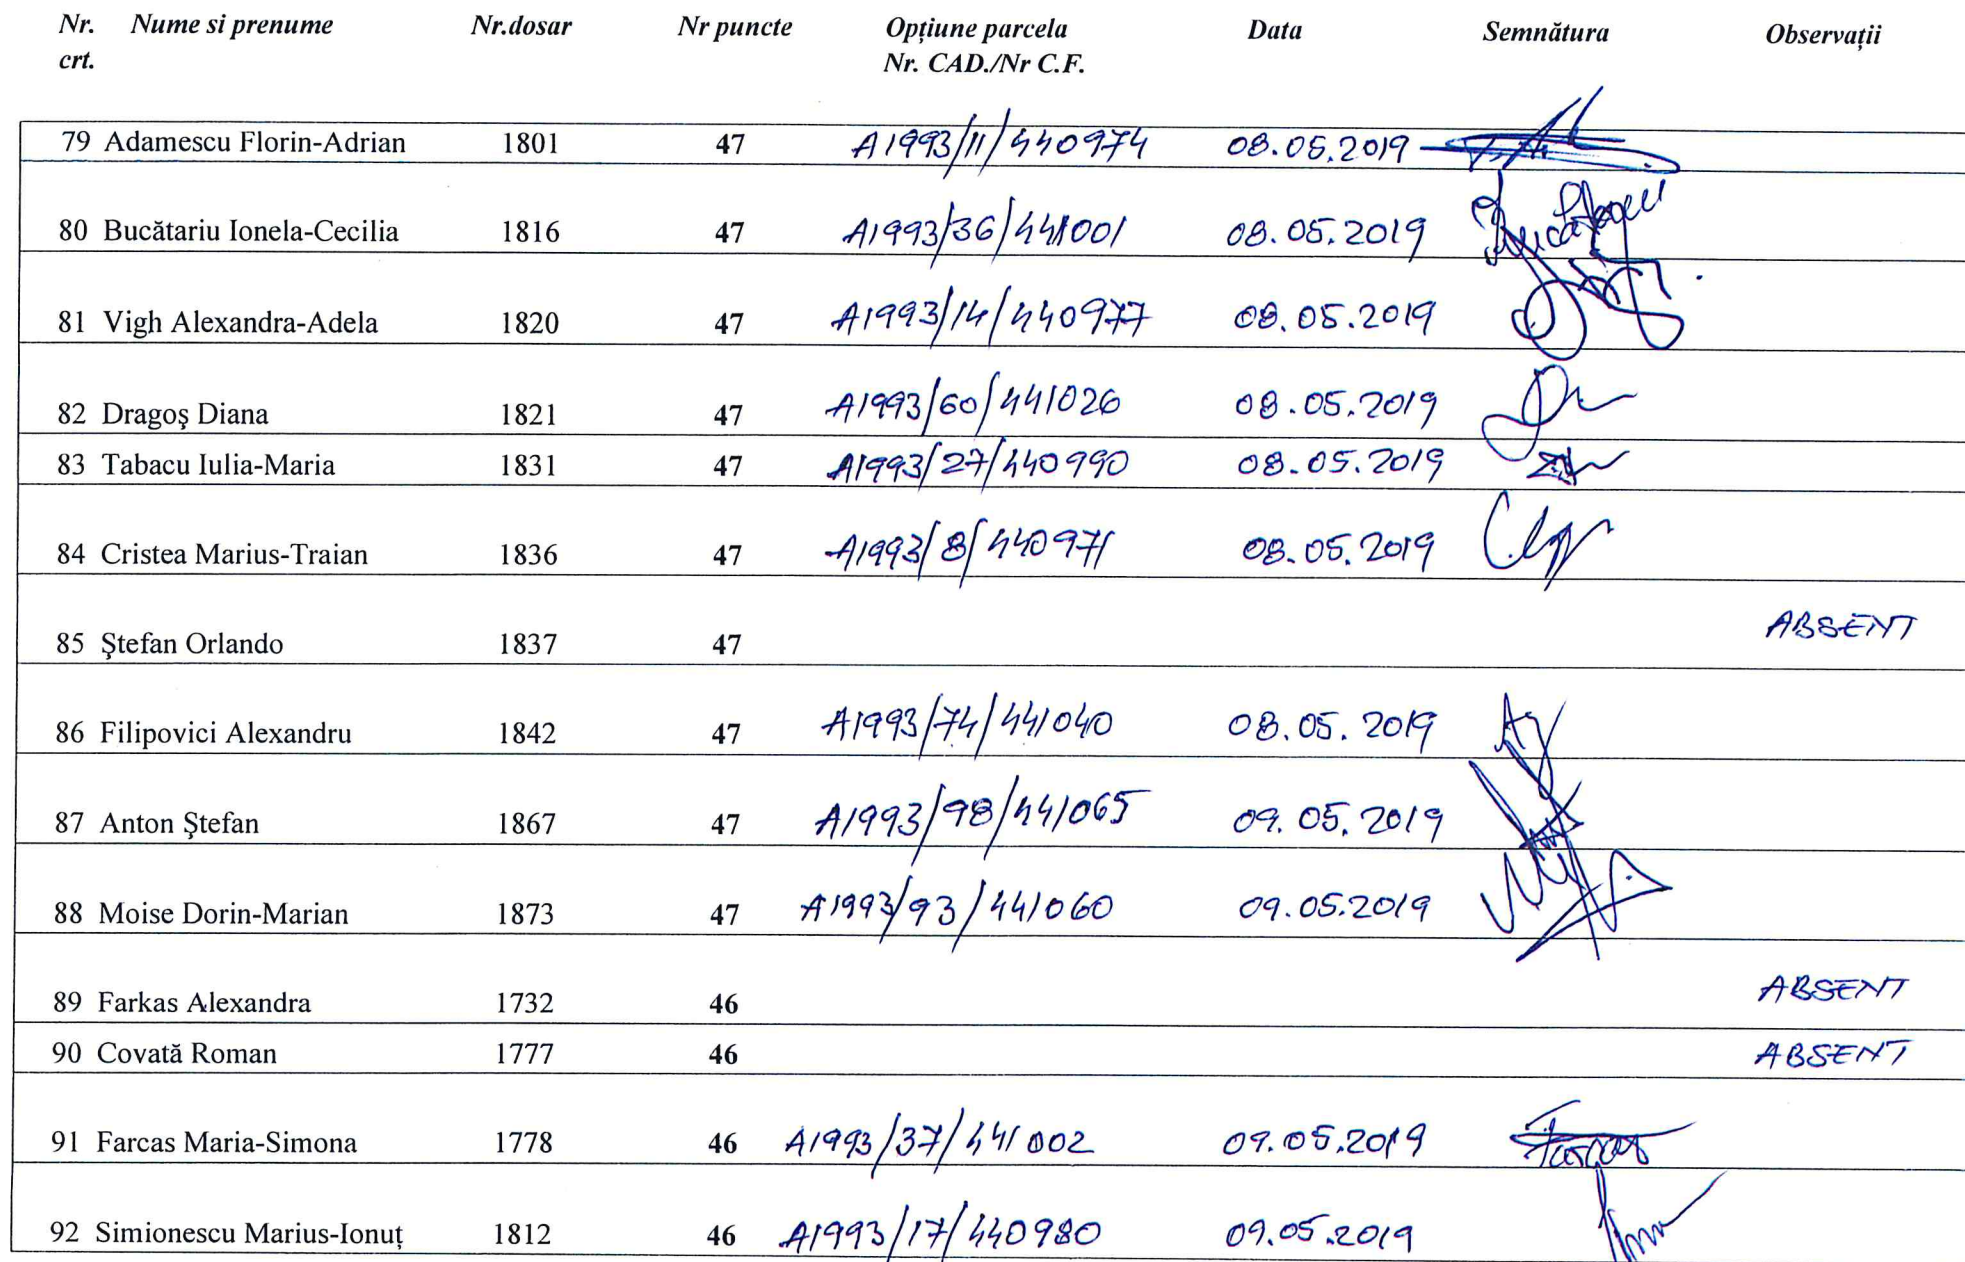 Nr. Nume si prenume Nr.dosar Nr puncte Opțiune parcela Data Semnătura Observații
crt. Nr. CAD./Nr C.F.
79 Adamescu Florin-Adrian 1801 47 A1993/11/440974 08.05.2019
80 Bucătariu Ionela-Cecilia 1816 47 A1993/36/441001 08.05.2019
81 Vigh Alexandra-Adela 1820 47 A1993/14/440977 08.05.2019
82 Dragoş Diana 1821 47 A1993/60/441026 08.05.2019
83 Tabacu Iulia-Maria 1831 47 A1993/27/440990 08.05.2019
84 Cristea Marius-Traian 1836 47 A1993/8/440971 08.05.2019
85 Ştefan Orlando 1837 47 ABSENT
86 Filipovici Alexandru 1842 47 A1993/74/441040 08.05.2019
87 Anton Ştefan 1867 47 A1993/98/441065 09.05.2019
88 Moise Dorin-Marian 1873 47 A1993/93/441060 09.05.2019
89 Farkas Alexandra 1732 46 ABSENT
90 Covată Roman 1777 46 ABSENT
91 Farcas Maria-Simona 1778 46 A1993/37/441002 09.05.2019 Farcas
92 Simionescu Marius-Ionuț 1812 46 A1993/17/440980 09.05.2019